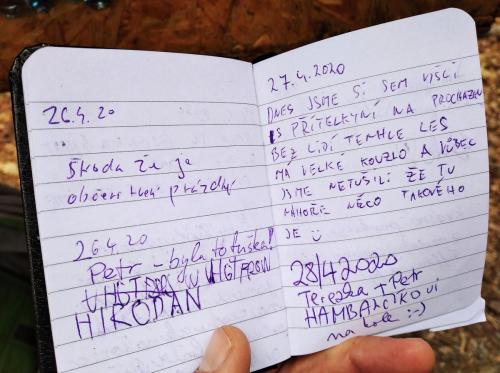 26.4.20
škoda že je
občerstvení prázdný
26.4.20
Petr - byla to fuška!
HIRODAN
27.4.2020
DNES JSME SI SEM VYŠLI
S PŘÍTELKYNÍ NA PROCHÁZKU
BEZ LIDÍ TENHLE LES
MÁ VELKÉ KOUZLO A VŮBEC
JSME NETUŠILI ŽE TU
NAHOŘE NĚCO TAKOVÉHO
JE
28/4 2020
Terezka + Petr
na kole :-)